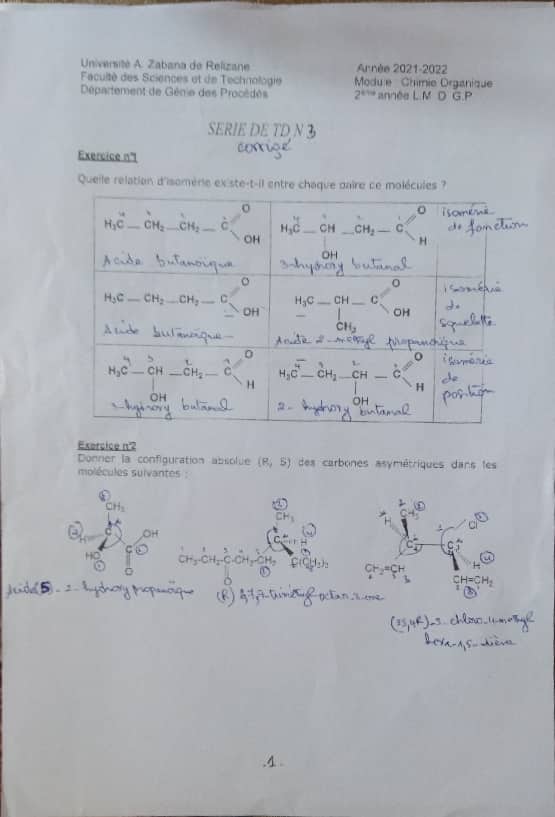 Université A. Zabana de Relizane
Faculté des Sciences et de Technologie
Département de Génie des Procédés
Année 2021-2022
Module : Chimie Organique
2ème année L.M D G.P
SERIE DE TD N 3
corrigé
Exercice n°1
Quelle relation d'isomérie existe-t-il entre chaque paire de molécules ?
4 H₃C — CH₂ — CH₂ — C O OH
Acide butanoïque
4 H₃C — CH — CH₂ — C O H
OH
3-hydroxy butanal
isomérie
de fonction
H₃C — CH₂ — CH₂ — C O OH
Acide butanoïque
H₃C — CH — C O OH
CH₃
Acide 2-méthyl propanoïque
isomérie
de
squelette
4 H₃C — CH — CH₂ — C O H
OH
3-hydroxy butanal
H₃C — CH₂ — CH — C O H
OH
2-hydroxy butanal
isomérie
de
position
Exercice n°2
Donner la configuration absolue (R, S) des carbones asymétriques dans les
molécules suivantes :
CH₃
H
HO
C
OH
O
Acide(S)-2-hydroxy propanoïque
CH₃
H
CH₃-CH₂-C-CH₂-CH₂
O
(R) 6,7,7-triméthyl octan-3-one
CH₃
H
Cl
H
CH₂=CH
CH=CH₂
(3S,4R)-3-chloro-4-méthyl
hexa-1,5-diène
.1.